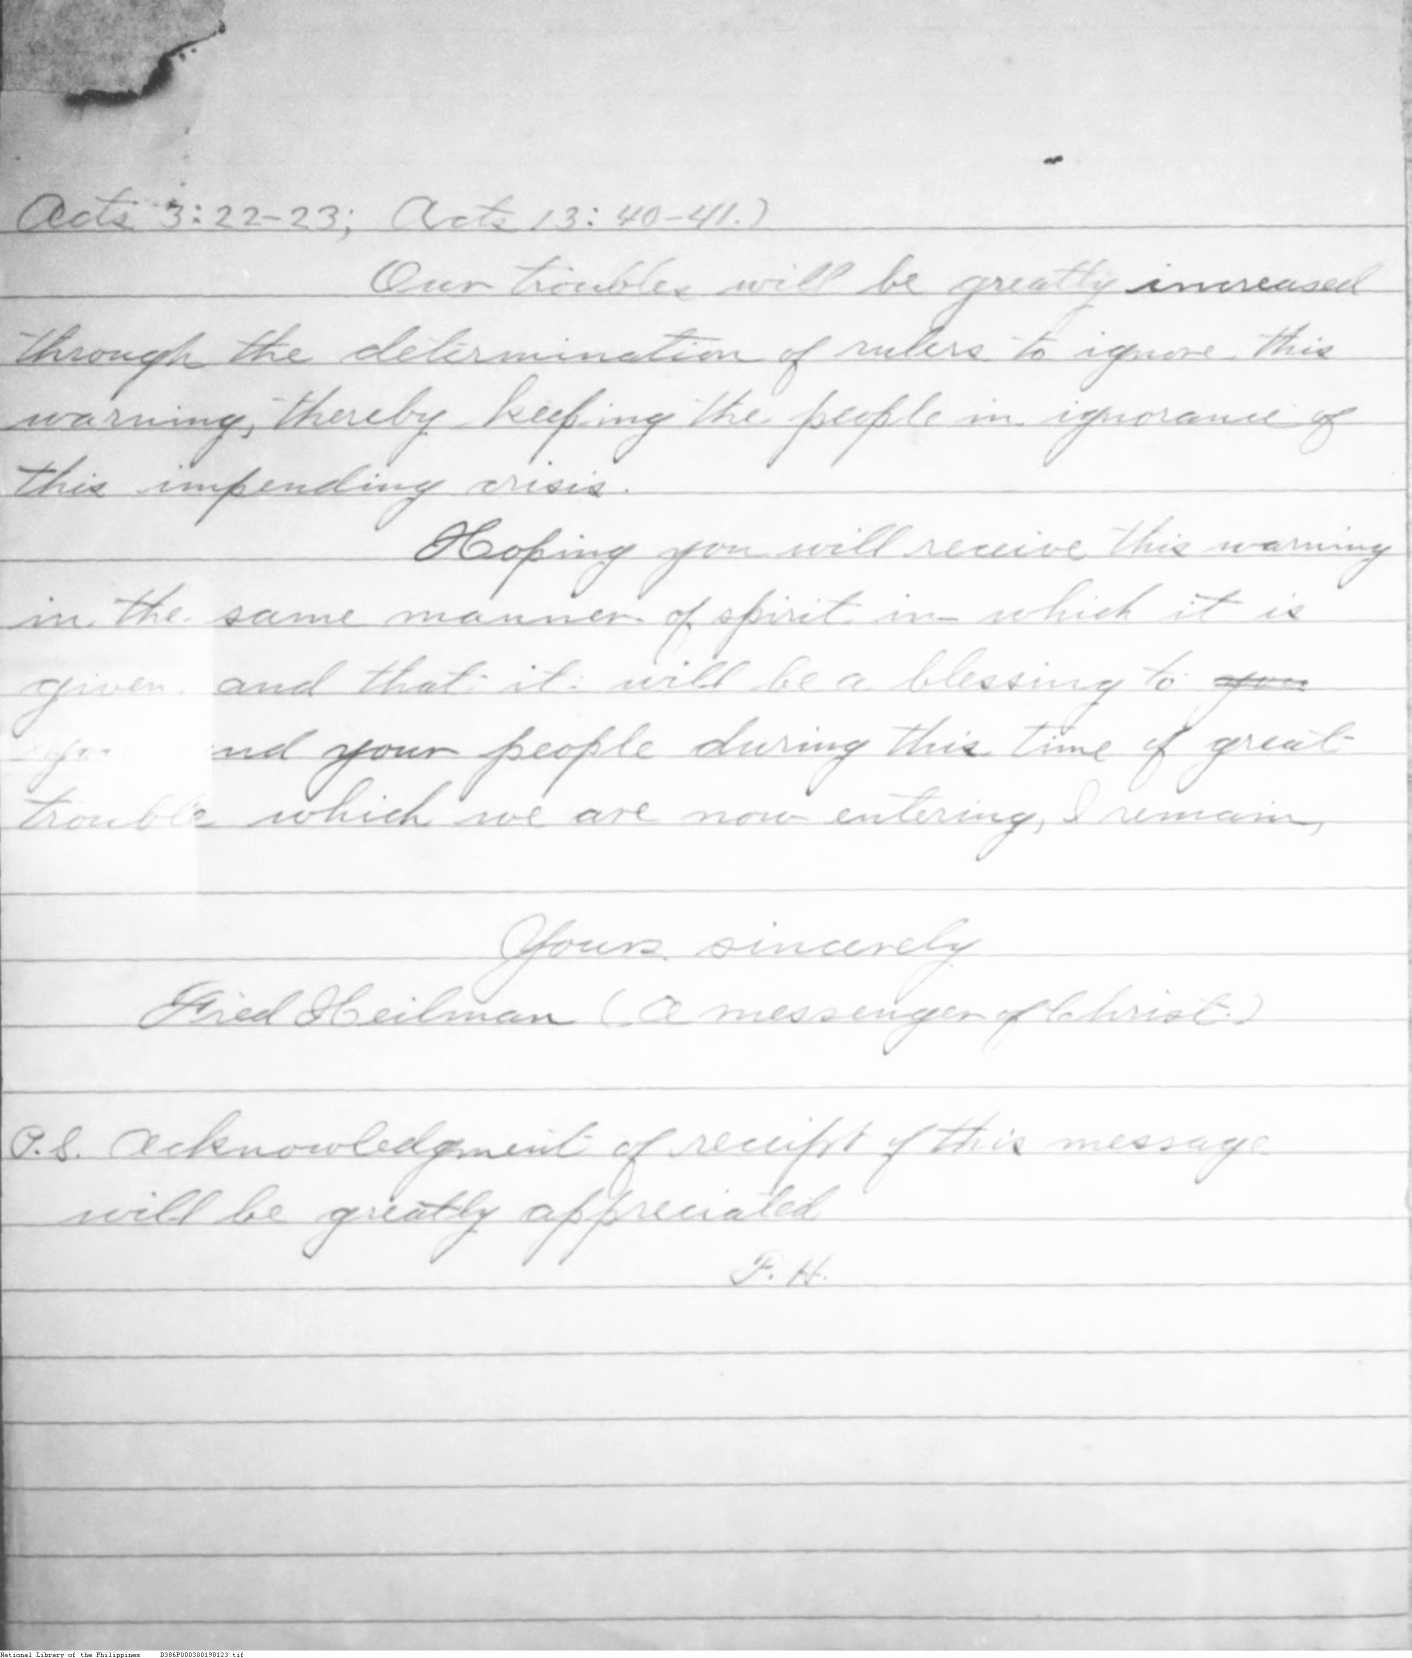 Acts 3:22-23; Acts 13:40-41.)
Our troubles will be greatly increased
through the determination of rulers to ignore this
warning, thereby keeping the people in ignorance of
this impending crisis.
Hoping you will receive this warning
in the same manner of spirit in which it is
given and that it will be a blessing to you
nd your people during this time of great
trouble which we are now entering, I remain,
Yours sincerely
Fred Heilman (A messenger of Christ.)
P.S. Acknowledgment of receipt of this message
will be greatly appreciated
F. H.
National Library of the Philippines D386P000300190123.tif